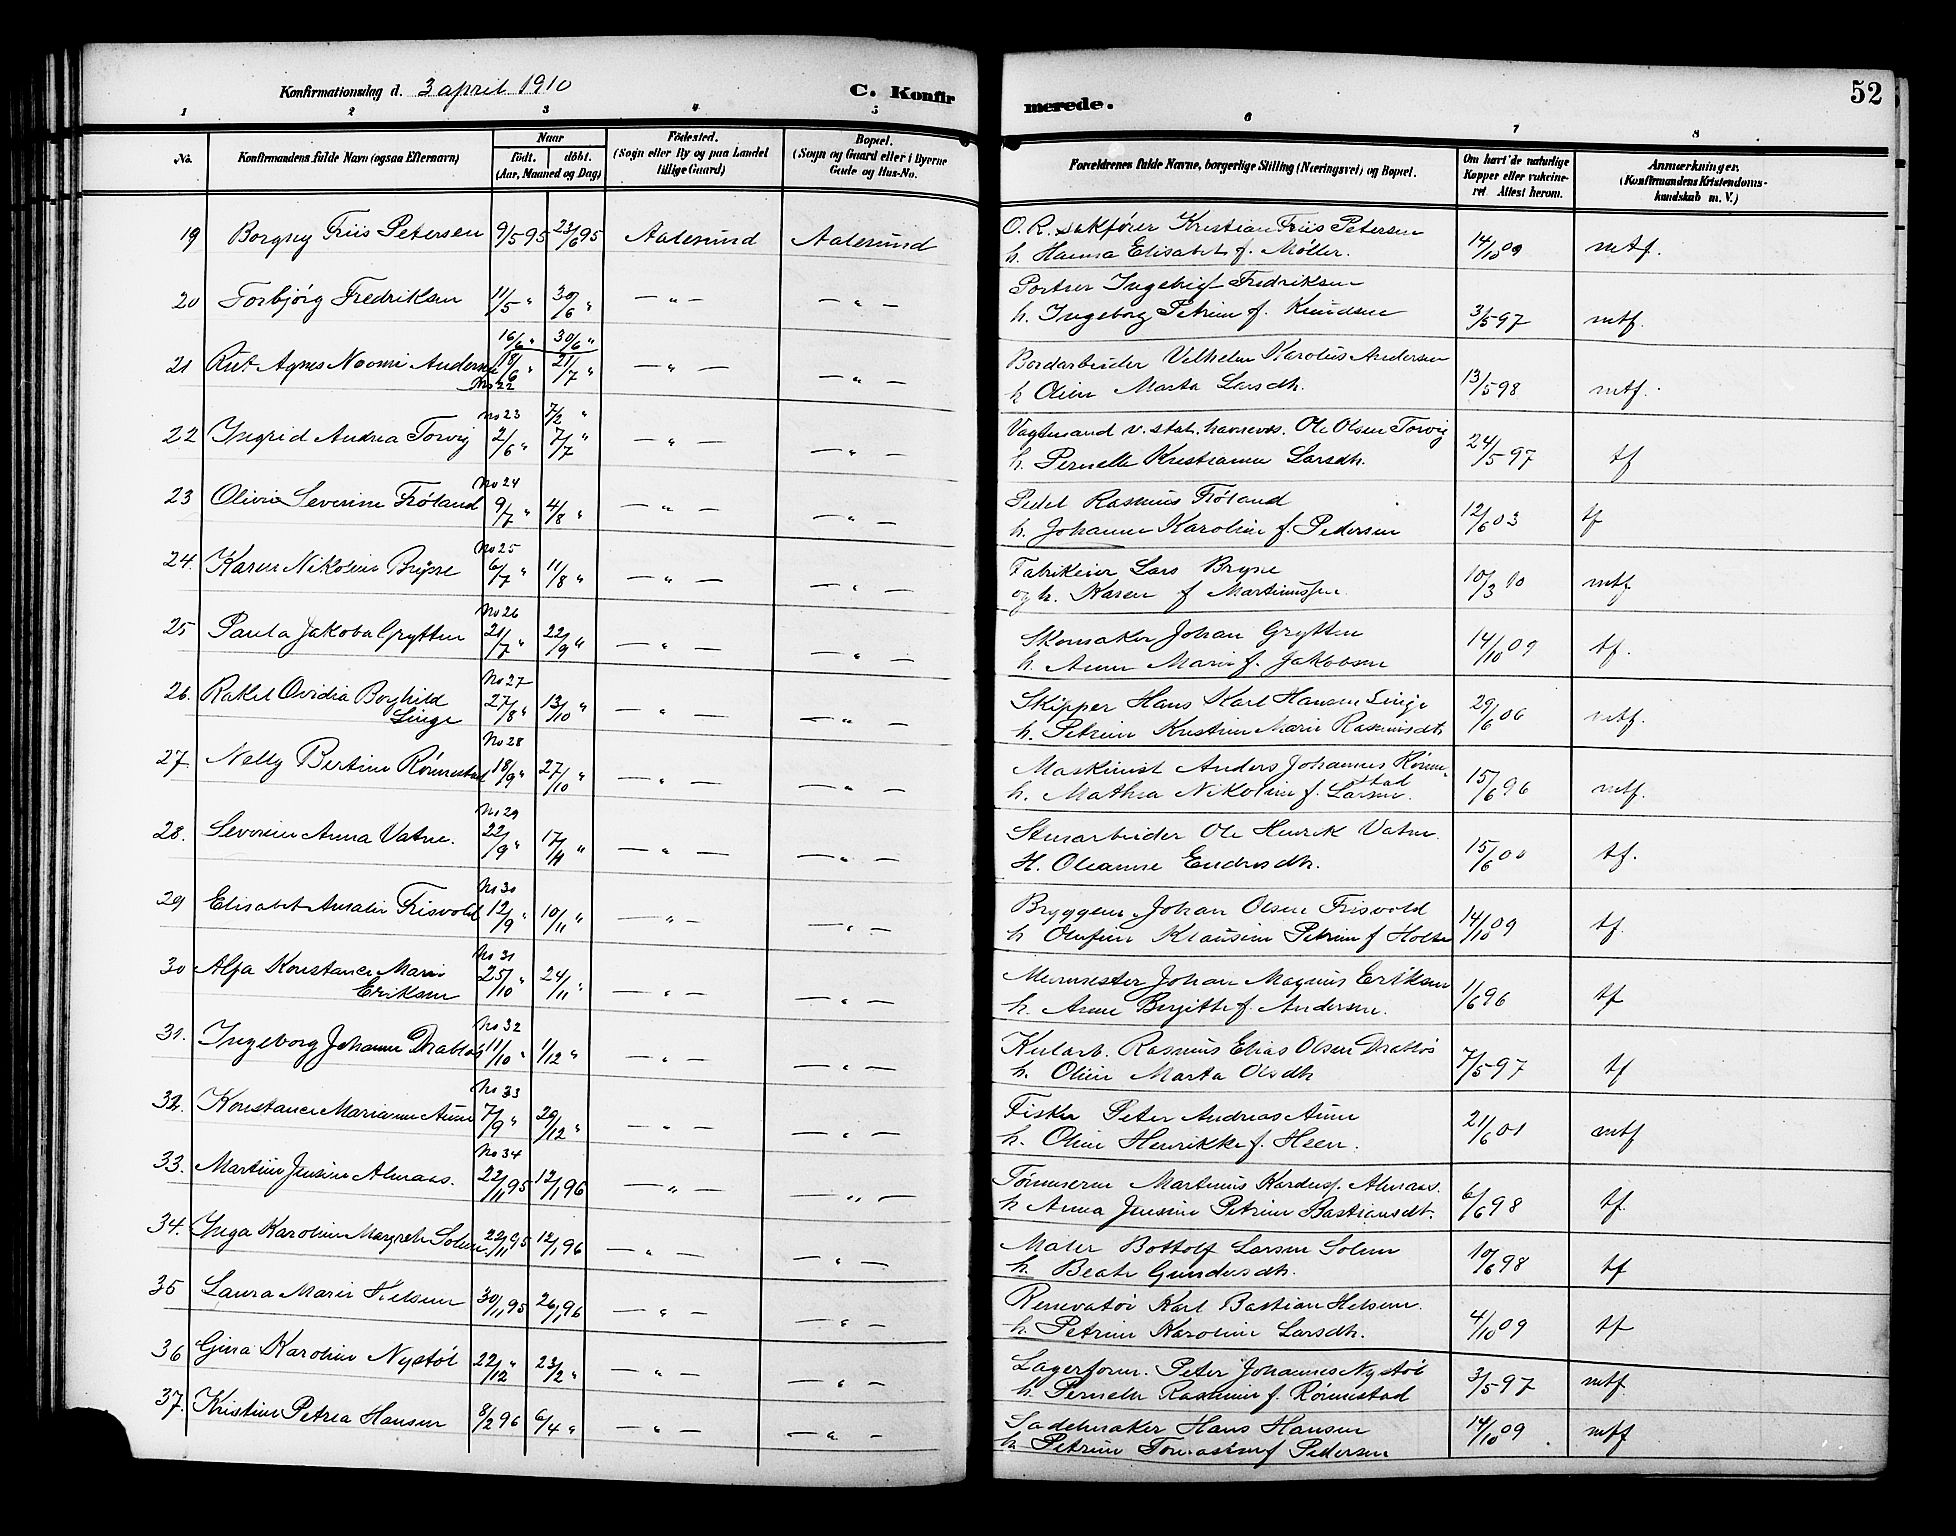 Konfirmationsdag d. 3 april 1910
C. Konfirmerede.
52
1 2 3 4 5 6 7 8
No. Konfirmandens fulde Navn (ogsaa Efternavn) Naar födt. döbt. (Aar, Maaned og Dag) Födested. (Sogn eller By og paa Landet tillige Gaard) Bopæl. (Sogn og Gaard eller i Byerne Gade og Hus-No. Forældrenes fulde Navne, borgerlige Stilling (Næringsvei) og Bopæl. Om havt de naturlige Kopper eller vakcineret Attest herom. Anmærkninger. (Konfirmandens Kristendomskundskab m. V.)
19 Borgny Friis Petersen 9/5 95 23/6 95 Aalesund Aalesund O.R. sakfører Kristian Friis Petersen 14/10 09 mtf.
h. Hanna Elisabet f. Møller.
20 Torbjörg Fredriksen 11/5 " 30/6 " — " — — " — Portner Ingebrigt Fredriksen 3/5 97 mtf.
h. Ingeborg Petrine f. Knudsen
16/6 " 30/6 "
21 Rut Agnes Noomi Andersen 18/6 " 21/7 " — " — — " — Bordarbeider Vilhelm Karolius Andersen 13/5 98 mtf.
No 22
h Oline Marta Larsdh.
No 23 7/2 "
22 Ingrid Andrea Torvig 2/6 " 7/7 " — " — — " — Vagtmand v. stat. havnevæs. Ole Olsen Torvig 24/5 97 tf
h. Pernelle Kristianne Larsdh.
No 24
23 Olivie Severine Frøland 9/7 " 4/8 " — " — — " — Pedel Rasmus Frøland 12/6 03 tf
h. Johanne Karoline f. Pedersen
No 25
24. Karen Nikoline Brysne 6/7 " 11/8 " — " — — " — Fabrikeier Lars Brysne 10/3 10 mtf
og h. Karen f Martinussen.
No 26
25 Paula Jakoba Grytten 21/7 " 22/9 " — " — — " — Skomaker Johan Grytten 14/10 09 tf.
h. Anne Marie f. Jakobsen
No 27
26. Rakel Ovidia Borghild Linge 27/8 " 13/10 " — " — — " — Skipper Hans Karl Hansen Linge 29/6 06 mtf.
h. Petrine Kristine Marie Rasmusdh
No 28
27. Nelly Bertine Rönnestad 18/9 " 27/10 " — " — — " — Maskinist Anders Johannes Rönnestad 15/6 96 mtf.
h. Mathea Nikoline f. Larsen.
No 29
28. Severine Anna Vatne. 22/9 " 17/11 " — " — — " — Stenarbeider Ole Henrik Vatne. 15/6 00 tf.
H. Oleanne Endresdh.
No 30
29 Elisabet Amalie Frisvold 12/9 " 10/11 " — " — — " — Bryggem. Johan Olsen Frisvold 14/10 09 tf.
h Olufine Klausine Petrine f Holte
No 31
30 Alfa Konstance Marie Eriksen 25/10 " 24/11 " — " — — " — Murmester Johan Magnus Eriksen 1/6 96 tf
h. Anne Birgitte f. Andersen.
No 32
31. Ingeborg Johanne Drabløs 11/10 " 1/12 " — " — — " — Kularb. Rasmus Elias Olsen Drabløs 7/5 97 tf
h. Oline Marta Olsdh
No 33
32. Konstance Marianne Aune 7/9 " 29/12 " — " — — " — Fisker Peter Andreas Aune 21/6 01 mtf
h. Oline Henrikke f. Heen.
No 34
33. Martine Jensine Almaas. 22/11 95 12/1 96 — " — — " — Tömmerm Martinus Kordusf. Almaas. 6/6 98 tf.
h Anna Jensine Petrine Bastiansdt.
34. Inga Karoline Margrete Solem. 22/11 95 12/1 96 — " — — " — Maler Bottolf Larsen Solem 10/6 98 tf
h. Beate Gundersdh.
35 Laura Marie Helsem 30/11 95 26/1 96 — " — — " — Renovatör Karl Bastian Helsem. 4/10 09 tf
h. Petrine Karoline Larsdh.
36 Gina Karoline Nystøl 22/12 " 23/2 " — " — — " — Lagerform. Peter Johannes Nystøl 3/5 97 mtf.
h. Pernelle Rasmine f. Rönnestad
37. Kristine Petrea Hansen 8/2 96 6/4 " — " — — " — Sadelmaker Hans Hansen 14/10 09 mtf
h. Petrine Tomasine f Pedersen